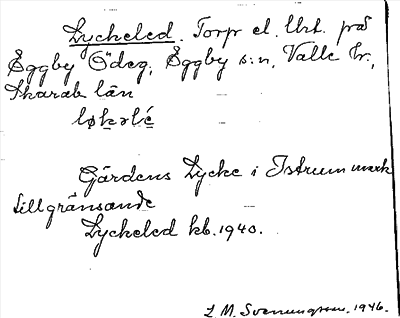 Lyckeled. Torp el. lht. på
Eggby Ödeg; Eggby s:n, Valle hr.,
Skarab. län
løkəlé
Gärdens Lycke i Istrum mark
tillgränsande
Lyckeled kb. 1940.
L. M. Svenungsson. 1946.